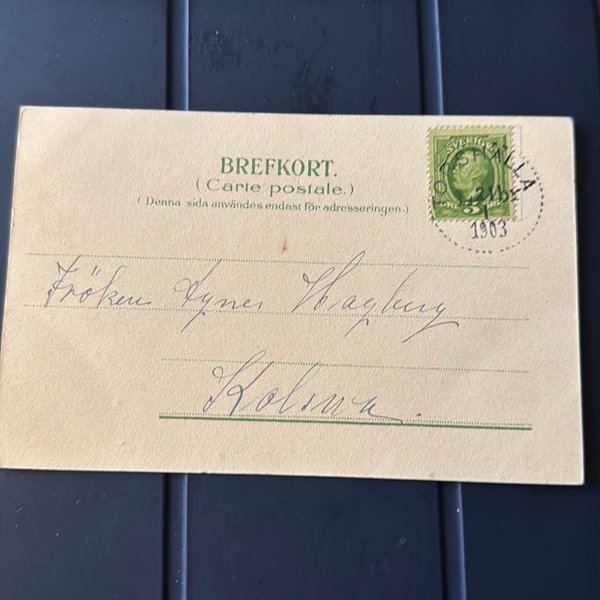 BREFKORT.
(Carte postale.)
(Denna sida användes endast för adresseringen.)
SVERIGE
1903
Fröken Agnes Hagberg
Kolsva.